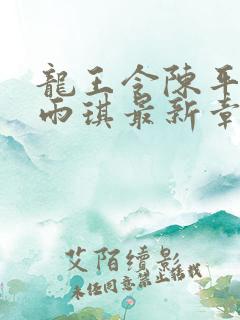 龍王令陳平
雨琪最新章
艾陌繽影
未经同意禁止转载